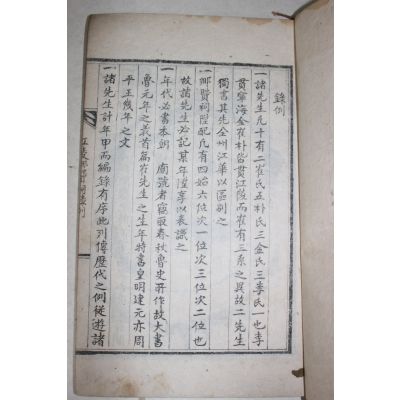 錄例
一諸先生凡十有二崔氏五朴氏三金氏三李氏一也李
貫寧海金崔朴皆貫江陵而崔有三系之異故二先生
獨書其先全州江華以區別之
一鄕賢祠陞配凡有四始六位次一位次三位次二位也
故諸先生必記某年陞享以表識之
一年代必書本朝 廟號者竊取春秋魯史所作故大書
魯元年之義首篇崔先生之生年特書皇明建元亦周
平王幾年之文
一諸先生計年甲而編錄有序此列傳歷代之例從遊諸